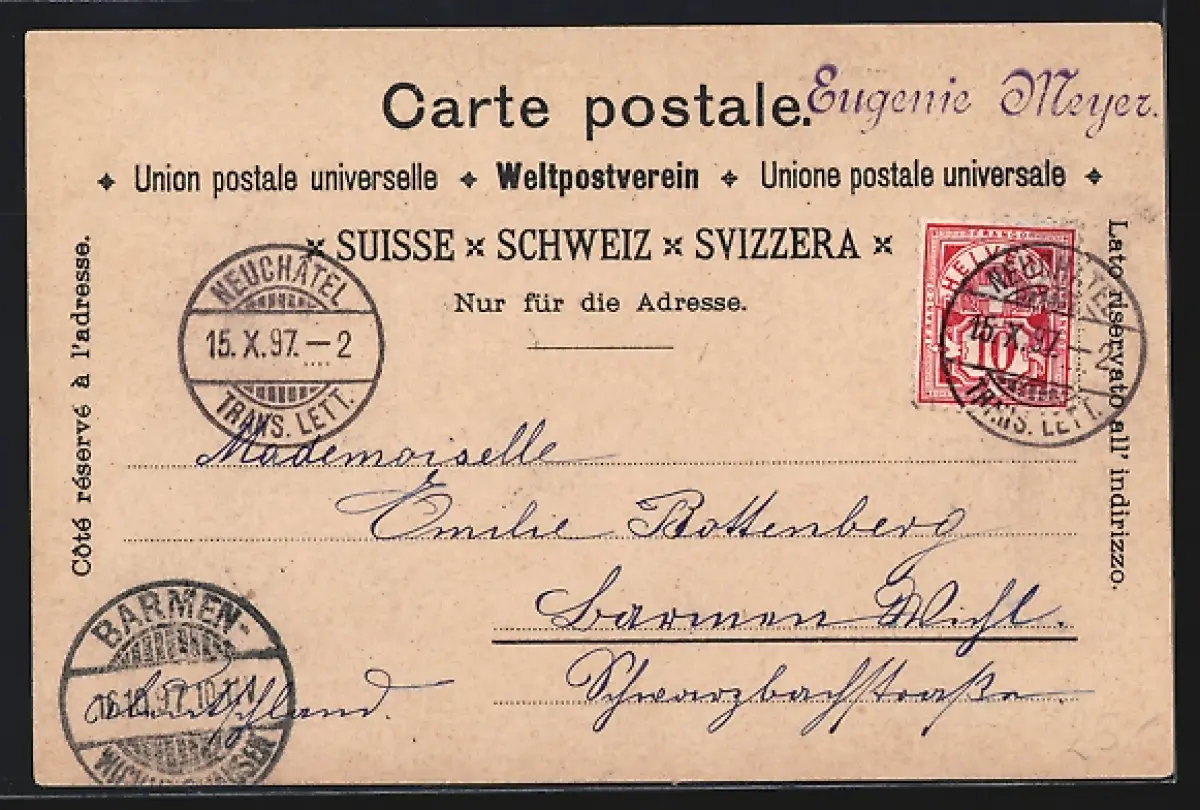 Carte postale.
Eugenie Meyer.
Union postale universelle Weltpostverein Unione postale universale
SUISSE × SCHWEIZ × SVIZZERA ×
Nur für die Adresse.
Côté réservé à l'adresse.
Lato riservato all' indirizzo.
NEUCHÂTEL
15. X. 97. – 2
TRANS. LETT.
FRANCO
HELVETIA
10
NEUCHÂTEL
15. X. 97. – 2
TRANS. LETT.
Mademoiselle
Emilie Rottenberg
Barmen Wichl.
Schwarzbachstraße
Deutschland.
BARMEN-
16.10.97.